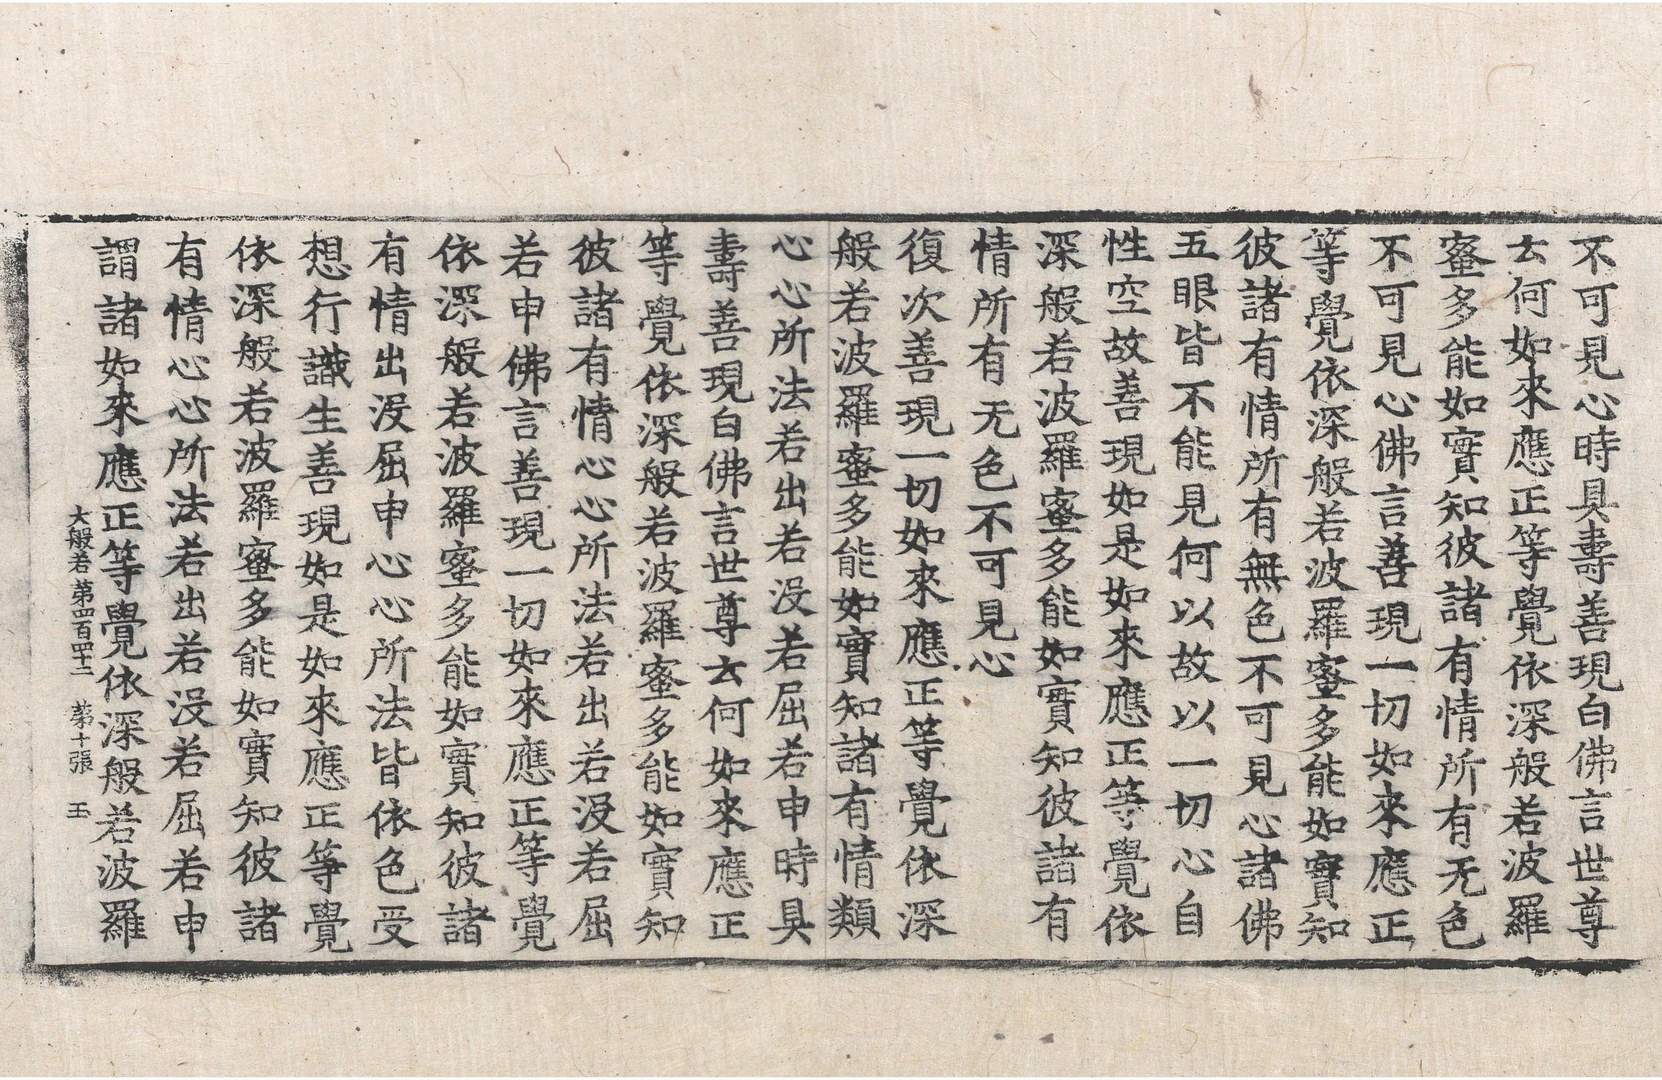 不可見心時具壽善現白佛言世尊
云何如來應正等覺依深般若波羅
蜜多能如實知彼諸有情所有无色
不可見心佛言善現一切如來應正
等覺依深般若波羅蜜多能如實知
彼諸有情所有無色不可見心諸佛
五眼皆不能見何以故以一切心自
性空故善現如是如來應正等覺依
深般若波羅蜜多能如實知彼諸有
情所有无色不可見心
復次善現一切如來應正等覺依深
般若波羅蜜多能如實知諸有情類
心心所法若出若没若屈若申時具
壽善現白佛言世尊云何如來應正
等覺依深般若波羅蜜多能如實知
彼諸有情心心所法若出若没若屈
若申佛言善現一切如來應正等覺
依深般若波羅蜜多能如實知彼諸
有情出没屈申心心所法皆依色受
想行識生善現如是如來應正等覺
依深般若波羅蜜多能如實知彼諸
有情心心所法若出若没若屈若申
謂諸如來應正等覺依深般若波羅
大般若第四百四十二 第十張 玉